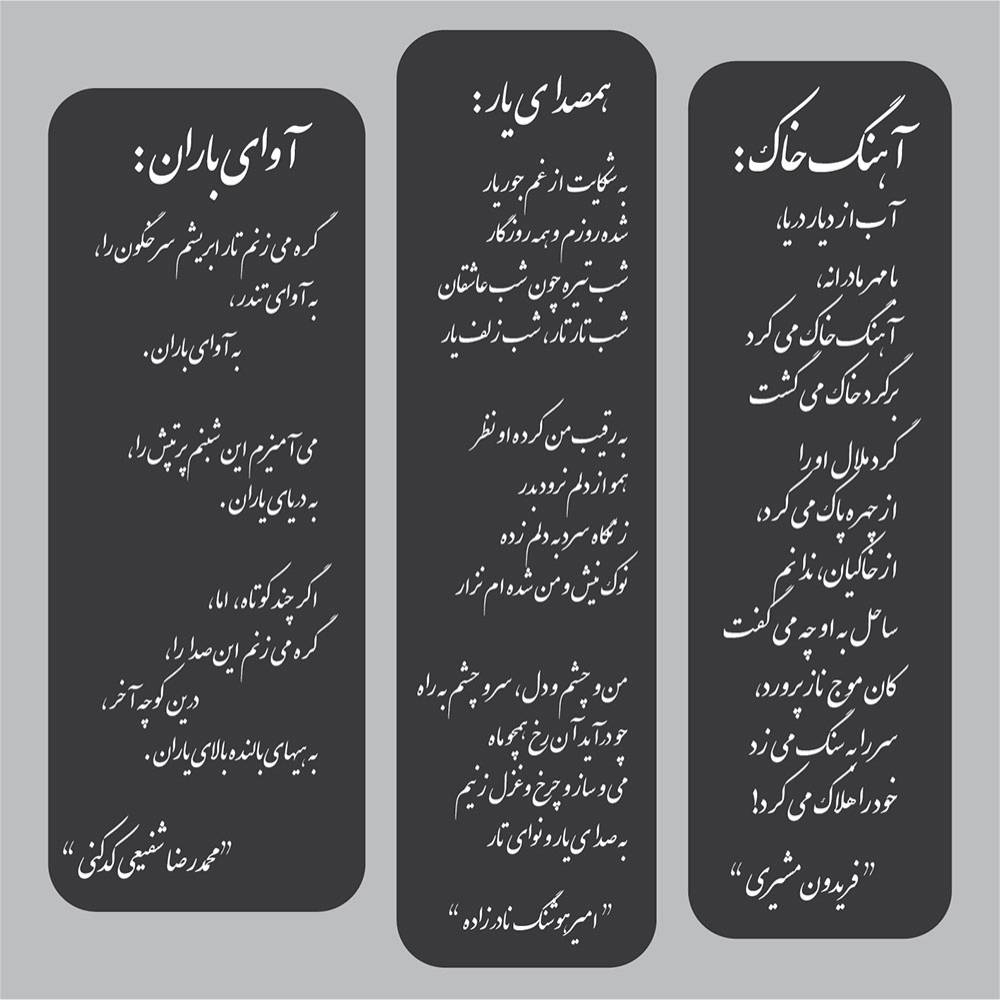 آهنگ خاک:
آب از دیار دریا،
با مهر مادرانه،
آهنگ خاک می کرد
برگرد خاک می گشت
گرد ملال او را
از چهره پاک می کرد،
از خاکیان، ندانم
ساحل به او چه می گفت
کان موج ناز پرورد،
سر را به سنگ می زد
خود را هلاک می کرد!
”فریدون مشیری“
همصدای یار:
به شکایت از غم جور یار
شده روزم و همه روزگار
شب تیره چون شب عاشقان
شب تار تار، شب زلف یار
به رقیب من کرده او نظر
همو از دلم نرود بدر
ز نگاه سرد به دلم زده
نوک نیش و من شده ام نزار
من و چشم و دل، سر و چشم به راه
چو درآید آن رخ همچو ماه
می و ساز و چرخ و غزل زنیم
به صدای یار و نوای تار
”امیرهوشنگ نادرزاده“
آوای باران:
گره می زنم تار ابریشم سرخگون را،
به آوای تندر،
به آوای باران.
می آمیزم این شبنم پرتپش را،
به دریای یاران.
اگر چند کوتاه، اما،
گره می زنم این صدا را،
درین کوچه آخر،
به هیهای بالنده بالای یاران.
”محمدرضا شفیعی کدکنی“